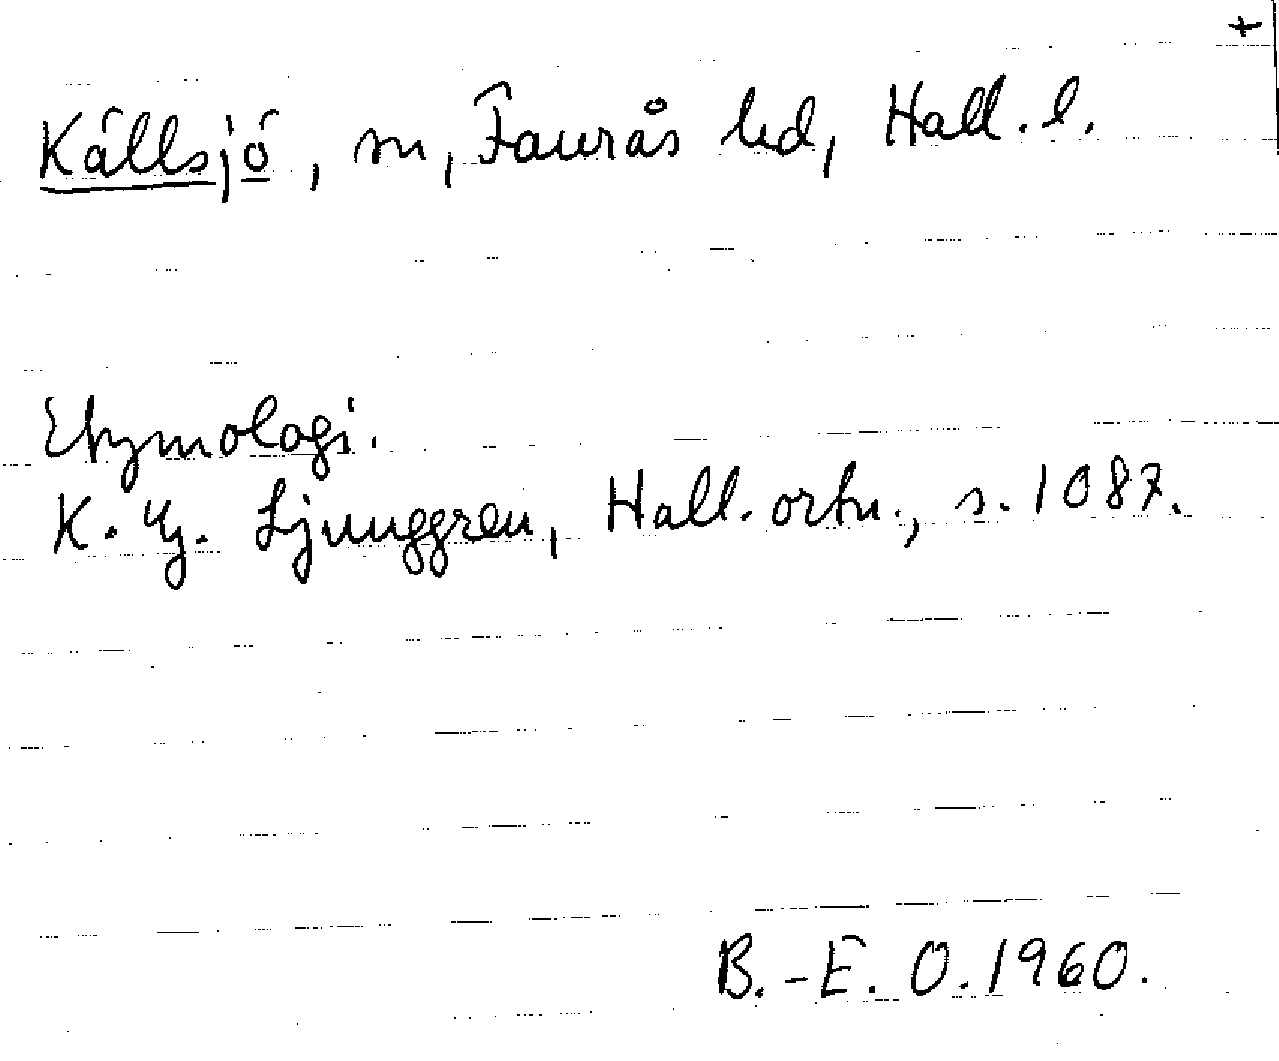 +
Källsjö, sn, Faurås hd, Hall. l.
Etymologi.
K. G. Ljunggren, Hall. ortn., s. 1087.
B.-E. O. 1960.